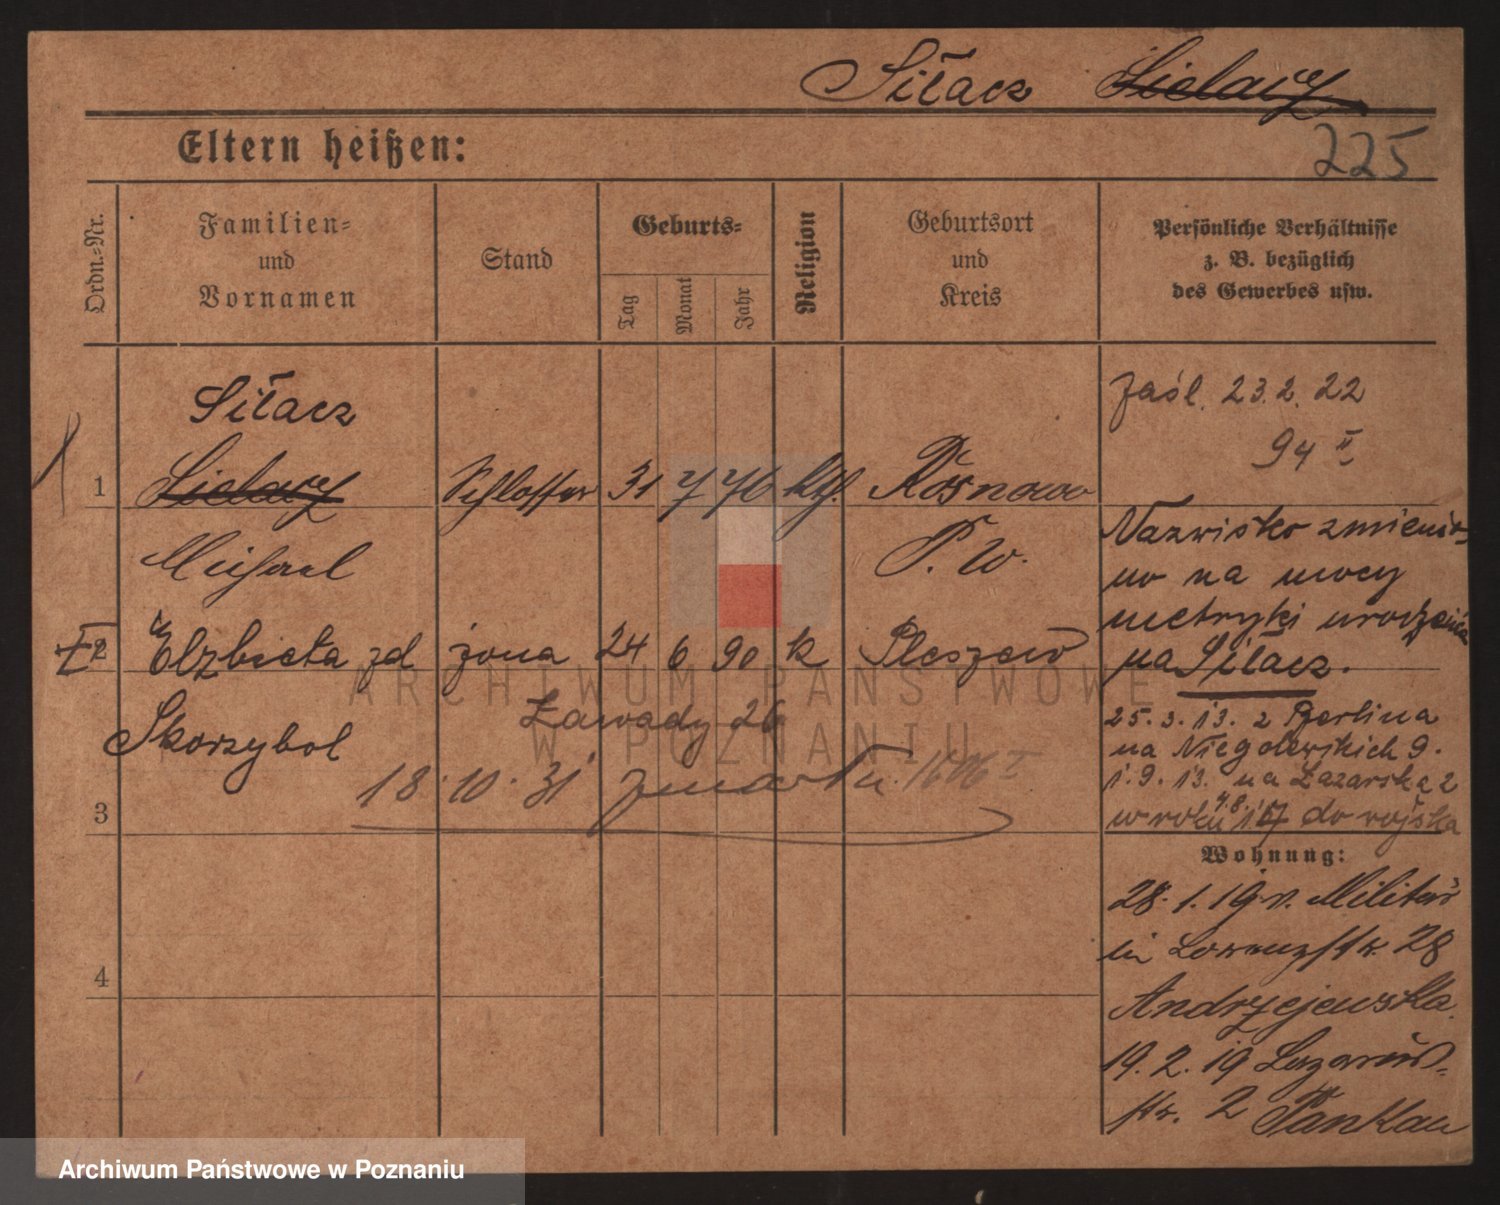 Siłacz Sielaczy
225
Eltern heißen:
Ordn.-Nr.
Familien-
und
Vornamen
Stand
Geburts-
Tag
Monat
Jahr
Religion
Geburtsort
und
Kreis
Persönliche Verhältnisse
z. B. bezüglich
des Gewerbes usw.
Siłacz
1 Schlosser 31 7 76 kth. Rosnowo
Michael P. W.
2 Elżbieta zd żona 24 6 90 k Pleszew
Skorzybol Zawady 26
18.10.31 zmarła
3
4
zaśl. 23.2.22
94 II
Nazwisko zmienio-
no na mocy
metryki urodzenia
na Siłacz.
25.3.13. z Berlina
na Niegolewskich 9.
1.9.13. na Łazarska 2
w roku 4.8. do wojska
Wohnung:
28.1.19 v. Militär
in Lorenzstr. 28
Andrzejewska.
19.2.19 Lazarus-
str. 2 Pankau
ARCHIWUM PAŃSTWOWE
W POZNANIU
Archiwum Państwowe w Poznaniu